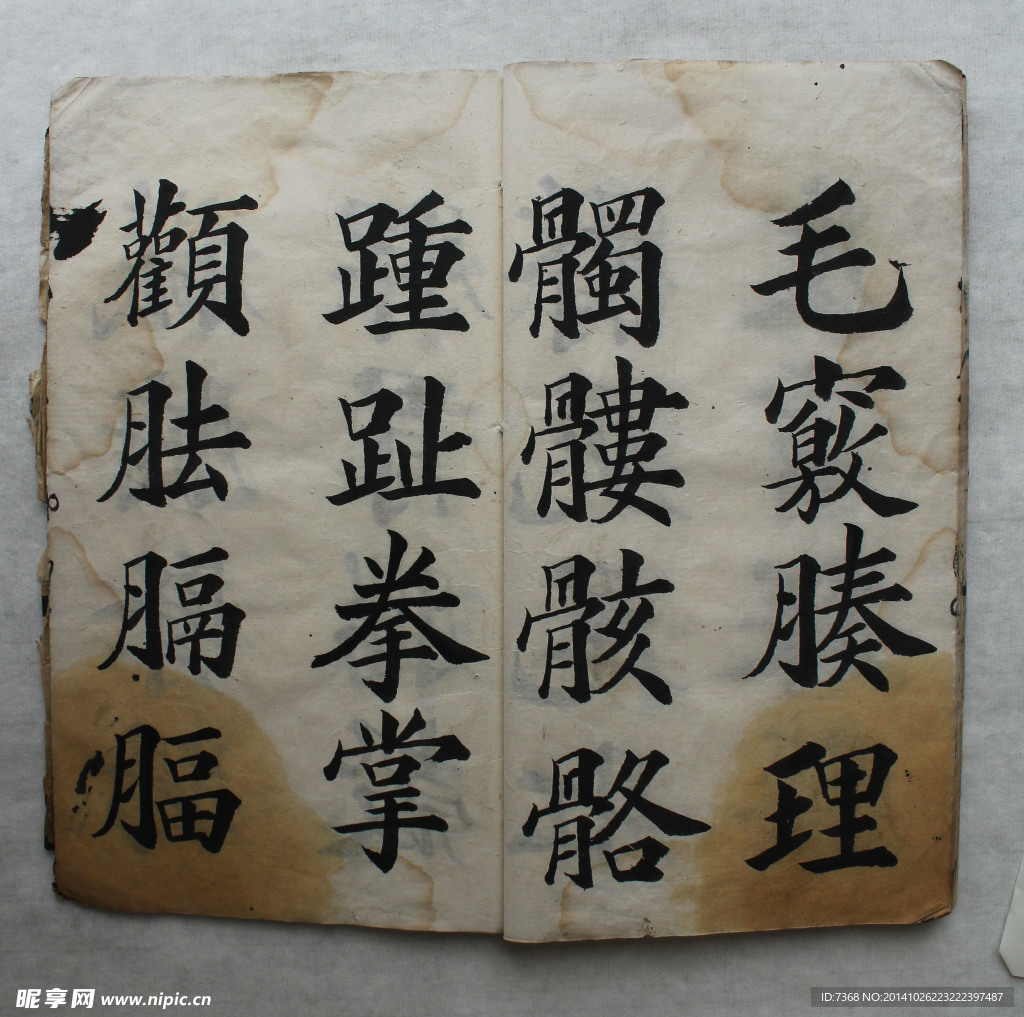 毛竅腠理
髑髏骸骼
踵趾拳掌
顴胠膈腷
昵享网 www.nipic.cn
ID:7368 NO:20141026223222397487